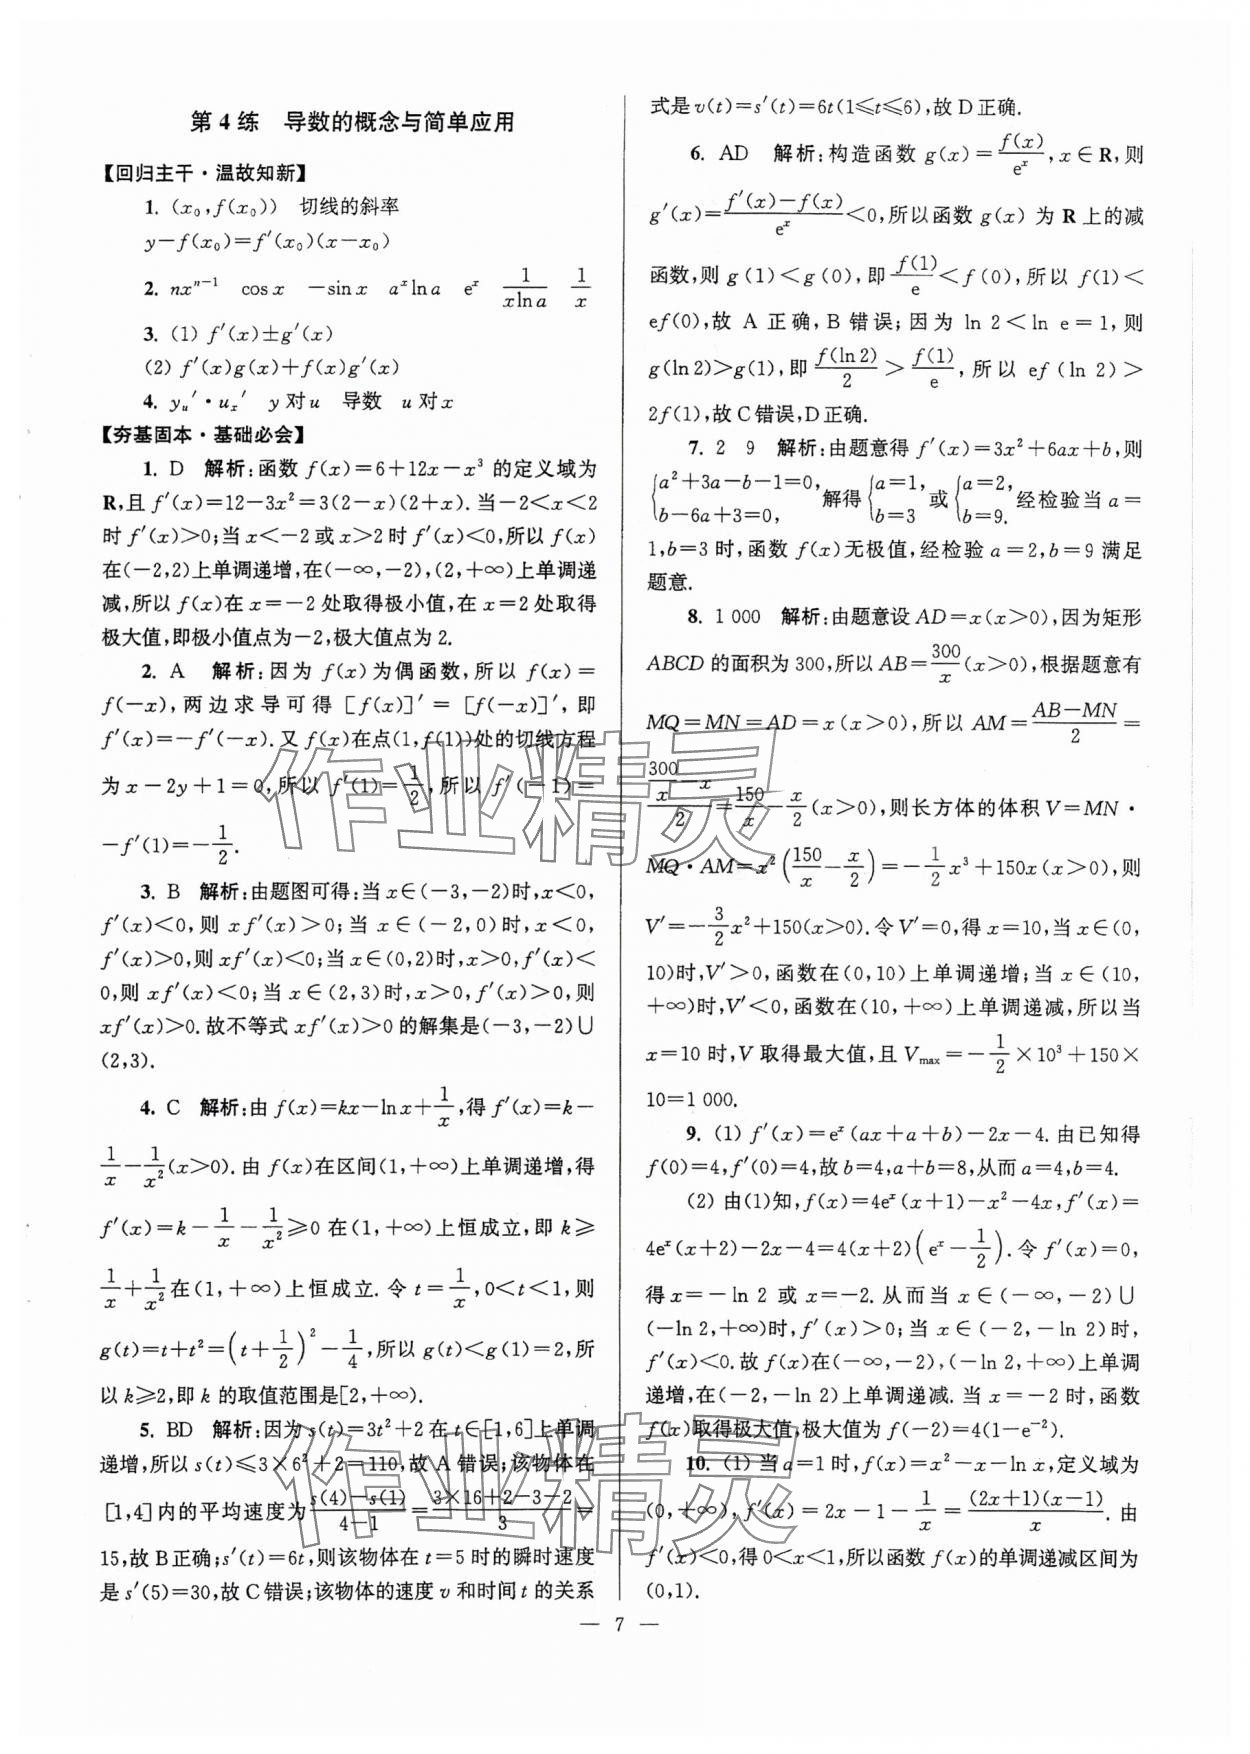 第 4 练　导数的概念与简单应用
【回归主干·温故知新】
1. (x₀,f(x₀))　切线的斜率
y－f(x₀)＝f′(x₀)(x－x₀)
2. nxⁿ⁻¹　cos x　－sin x　aˣln a　eˣ　1/(xln a)　1/x
3. (1) f′(x)±g′(x)
(2) f′(x)g(x)＋f(x)g′(x)
4. yᵤ′·uₓ′　y 对 u　导数　u 对 x
【夯基固本·基础必会】
1. D　解析:函数 f(x)＝6＋12x－x³ 的定义域为
R,且 f′(x)＝12－3x²＝3(2－x)(2＋x).当－2<x<2
时 f′(x)>0;当 x<－2 或 x>2 时 f′(x)<0,所以 f(x)
在(－2,2)上单调递增,在(－∞,－2),(2,＋∞)上单调递
减,所以 f(x)在 x＝－2 处取得极小值,在 x＝2 处取得
极大值,即极小值点为－2,极大值点为 2.
2. A　解析:因为 f(x)为偶函数,所以 f(x)＝
f(－x),两边求导可得[f(x)]′＝[f(－x)]′,即
f′(x)＝－f′(－x).又 f(x)在点(1,f(1))处的切线方程
为 x－2y＋1＝0,所以 f′(1)＝1/2,所以 f′(－1)＝
－f′(1)＝－1/2.
3. B　解析:由题图可得:当 x∈(－3,－2)时,x<0,
f′(x)<0,则 xf′(x)>0;当 x∈(－2,0)时,x<0,
f′(x)>0,则 xf′(x)<0;当 x∈(0,2)时,x>0,f′(x)<
0,则 xf′(x)<0;当 x∈(2,3)时,x>0,f′(x)>0,则
xf′(x)>0.故不等式 xf′(x)>0 的解集是(－3,－2)∪
(2,3).
4. C　解析:由 f(x)＝kx－ln x＋1/x,得 f′(x)＝k－
1/x－1/x²(x>0).由 f(x)在区间(1,＋∞)上单调递增,得
f′(x)＝k－1/x－1/x²≥0 在(1,＋∞)上恒成立,即 k≥
1/x＋1/x²在(1,＋∞)上恒成立.令 t＝1/x,0<t<1,则
g(t)＝t＋t²＝(t＋1/2)²－1/4,所以 g(t)<g(1)＝2,所
以 k≥2,即 k 的取值范围是[2,＋∞).
5. BD　解析:因为 s(t)＝3t²＋2 在 t∈[1,6]上单调
递增,所以 s(t)≤3×6²＋2＝110,故 A 错误;该物体在
[1,4]内的平均速度为(s(4)－s(1))/(4－1)＝(3×16＋2－3－2)/3＝
15,故 B 正确;s′(t)＝6t,则该物体在 t＝5 时的瞬时速度
是 s′(5)＝30,故 C 错误;该物体的速度 v 和时间 t 的关系
式是 v(t)＝s′(t)＝6t(1≤t≤6),故 D 正确.
6. AD　解析:构造函数 g(x)＝f(x)/eˣ,x∈R,则
g′(x)＝(f′(x)－f(x))/eˣ<0,所以函数 g(x) 为 R 上的减
函数,则 g(1)<g(0),即 f(1)/e<f(0),所以 f(1)<
ef(0),故 A 正确,B 错误;因为 ln 2<ln e＝1,则
g(ln 2)>g(1),即 f(ln 2)/2>f(1)/e,所以 ef(ln 2)>
2f(1),故 C 错误,D 正确.
7. 2　9　解析:由题意得 f′(x)＝3x²＋6ax＋b,则
{a²＋3a－b－1＝0, b－6a＋3＝0, 解得{a＝1, b＝3 或{a＝2, b＝9. 经检验当 a＝
1,b＝3 时,函数 f(x)无极值,经检验 a＝2,b＝9 满足
题意.
8. 1 000　解析:由题意设 AD＝x(x>0),因为矩形
ABCD 的面积为 300,所以 AB＝300/x(x>0),根据题意有
MQ＝MN＝AD＝x(x>0),所以 AM＝(AB－MN)/2＝
(300/x－x)/2＝150/x－x/2(x>0),则长方体的体积 V＝MN·
MQ·AM＝x²(150/x－x/2)＝－1/2x³＋150x(x>0),则
V′＝－3/2x²＋150(x>0).令 V′＝0,得 x＝10,当 x∈(0,
10)时,V′>0,函数在(0,10)上单调递增;当 x∈(10,
＋∞)时,V′<0,函数在(10,＋∞)上单调递减,所以当
x＝10 时,V 取得最大值,且 Vmax＝－1/2×10³＋150×
10＝1 000.
9. (1) f′(x)＝eˣ(ax＋a＋b)－2x－4.由已知得
f(0)＝4,f′(0)＝4,故 b＝4,a＋b＝8,从而 a＝4,b＝4.
(2) 由(1)知,f(x)＝4eˣ(x＋1)－x²－4x,f′(x)＝
4eˣ(x＋2)－2x－4＝4(x＋2)(eˣ－1/2).令 f′(x)＝0,
得 x＝－ln 2 或 x＝－2.从而当 x∈(－∞,－2)∪
(－ln 2,＋∞)时,f′(x)>0;当 x∈(－2,－ln 2)时,
f′(x)<0.故 f(x)在(－∞,－2),(－ln 2,＋∞)上单调
递增,在(－2,－ln 2)上单调递减.当 x＝－2 时,函数
f(x)取得极大值,极大值为 f(－2)＝4(1－e⁻²).
10. (1) 当 a＝1 时,f(x)＝x²－x－ln x,定义域为
(0,＋∞),f′(x)＝2x－1－1/x＝(2x＋1)(x－1)/x.由
f′(x)<0,得 0<x<1,所以函数 f(x)的单调递减区间为
(0,1).
— 7 —
作业精灵
作业精灵